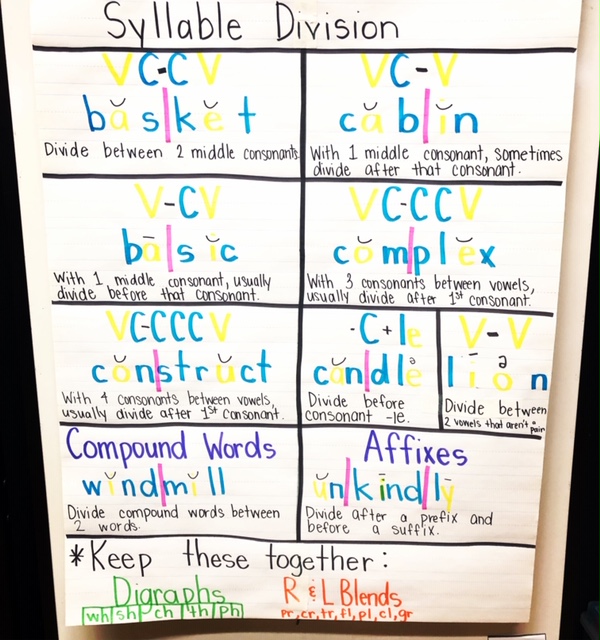 Syllable Division
VC-CV
băs|kĕt
Divide between 2 middle consonants.
VC-V
căb|ĭn
With 1 middle consonant, sometimes
divide after that consonant.
V-CV
bā|sĭc
With 1 middle consonant, usually
divide before that consonant.
VC-CCV
cŏm|plĕx
With 3 consonants between vowels,
usually divide after 1st consonant.
VC-CCCV
cŏn|strŭct
With 4 consonants between vowels,
usually divide after 1st consonant.
-C+le
căn|dlə
Divide before
consonant -le.
V-V
līən
Divide between
2 vowels that aren't a pair
Compound Words
wĭnd|mĭll
Divide compound words between
2 words.
Affixes
ŭn|kīnd|lȳ
Divide after a prefix and
before a suffix.
*Keep these together:
Digraphs
wh sh ch th ph
R & L Blends
pr, cr, tr, fl, pl, cl, gr